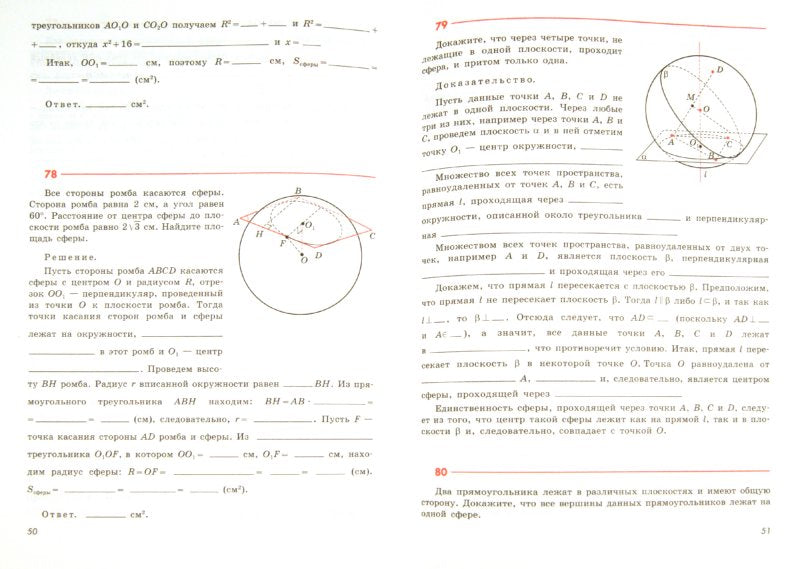 треугольников AO₁O и CO₂O получаем R²=____+____ и R²=____+
+____, откуда x²+16=____ и x=____
Итак, OO₁=____ см, поэтому R=____ см, Sсферы=____=
=____=____ (см²).
Ответ. ____ см².
78
Все стороны ромба касаются сферы.
Сторона ромба равна 2 см, а угол равен
60°. Расстояние от центра сферы до пло-
скости ромба равно 2√3 см. Найдите пло-
щадь сферы.
Решение.
Пусть стороны ромба ABCD касаются
сферы с центром O и радиусом R, отре-
зок OO₁ — перпендикуляр, проведенный
из точки O к плоскости ромба. Тогда
точки касания сторон ромба и сферы
лежат на окружности, ____
____ в этот ромб и O₁ — центр
____. Проведем высо-
ту BH ромба. Радиус r вписанной окружности равен ____BH. Из пря-
моугольного треугольника ABH находим: BH=AB·____=
=____=____ (см), следовательно, r=____. Пусть F —
точка касания стороны AD ромба и сферы. Из ____
треугольника O₁OF, в котором OO₁=____ см, O₁F=____ см, нахо-
дим радиус сферы: R=OF=____=____=____ (см).
Sсферы=____=____=____ (см²).
Ответ. ____ см².
B
A
O₁
H
F
C
D
O
50
79
Докажите, что через четыре точки, не
лежащие в одной плоскости, проходит
сфера, и притом только одна.
Доказательство.
Пусть данные точки A, B, C и D не
лежат в одной плоскости. Через любые
три из них, например через точки A, B и
C, проведем плоскость α и в ней отметим
точку O₁ — центр окружности, ____
Множество всех точек пространства,
равноудаленных от точек A, B и C, есть
прямая l, проходящая через ____
окружности, описанной около треугольника ____ и перпендикуляр-
ная ____
Множеством всех точек пространства, равноудаленных от двух то-
чек, например A и D, является плоскость β, перпендикулярная
____ и проходящая через его ____
Докажем, что прямая l пересекается с плоскостью β. Предположим,
что прямая l не пересекает плоскость β. Тогда l∥β либо l⊂β, и так как
l⊥__, то β⊥__. Отсюда следует, что AD⊂__ (поскольку AD⊥__
и A∈__), а значит, все данные точки A, B, C и D лежат
в ____, что противоречит условию. Итак, прямая l пере-
секает плоскость β в некоторой точке O. Точка O равноудалена от
____ A, ____ и, следовательно, является центром
сферы, проходящей через ____
Единственность сферы, проходящей через точки A, B, C и D, следу-
ет из того, что центр такой сферы лежит как на прямой l, так и в пло-
скости β и, следовательно, совпадает с точкой O.
β
D
M
O
A
C
O₁
B
α
l
80
Два прямоугольника лежат в различных плоскостях и имеют общую
сторону. Докажите, что все вершины данных прямоугольников лежат на
одной сфере.
51